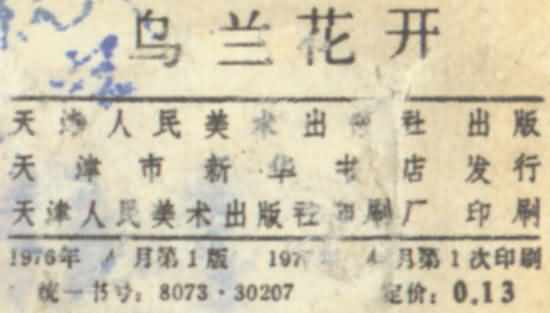 乌兰花开
天津人民美术出版社出版
天津市新华书店发行
天津人民美术出版社印刷厂印刷
1976年4月第1版 197 4月第1次印刷
统一书号：8073·30207 定价：0.13